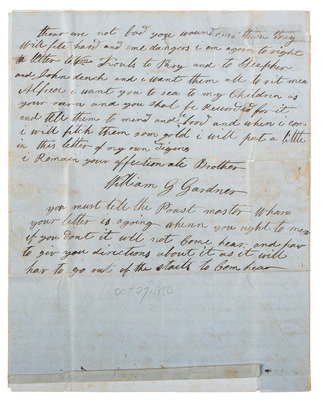 thear are not bad you wound one then they
will fite hard and are dangers i am again to right
a leter to Fouls to Pery and to Stephen
and John dench and i want them all to rit me
Alfred i want you to sea to my Children as
your oawn and you shal be Reworded for it
and tele them to mind and good and when i com
i will fitch them som gold i will put a little
in this letter of my own diging
i Remain your affectionate Brother
William G Gardner
you must tile the Poust master Whare
your letter is agoing whenn you right to me
if you dont it will not Come hear and pay
to giv you directions about it as it will
hav to go out of the staits to Com hear
OCT 27 1850